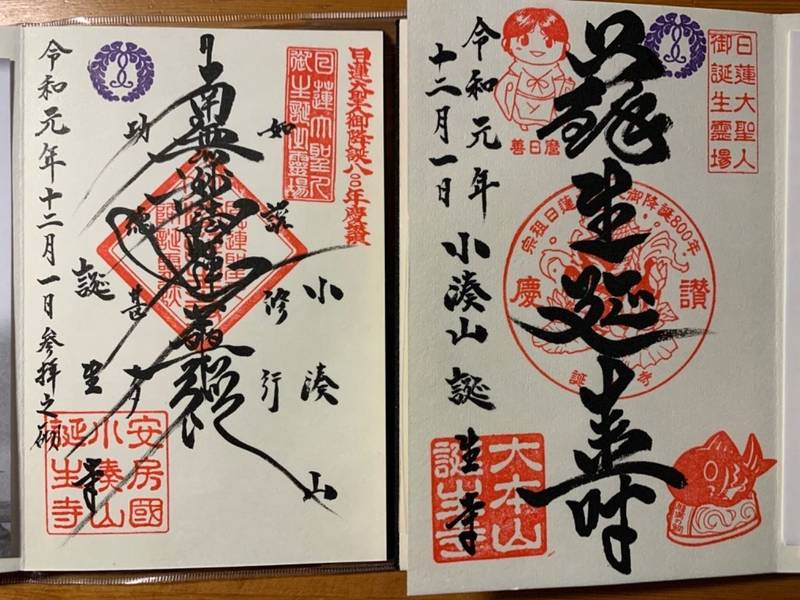 日蓮大聖人御降誕八〇〇年慶讃
日蓮大聖人
小湊山
如説修行
南無妙法蓮華経
功徳甚多
誕生寺
令和元年十二月一日参拝之砌
安房國
小湊山
誕生寺
日蓮大聖人
御誕生霊場
蘇生延壽
御降誕800年
慶讃
善日麿
令和元年
十二月一日
小湊山誕生寺
大本山
誕生寺